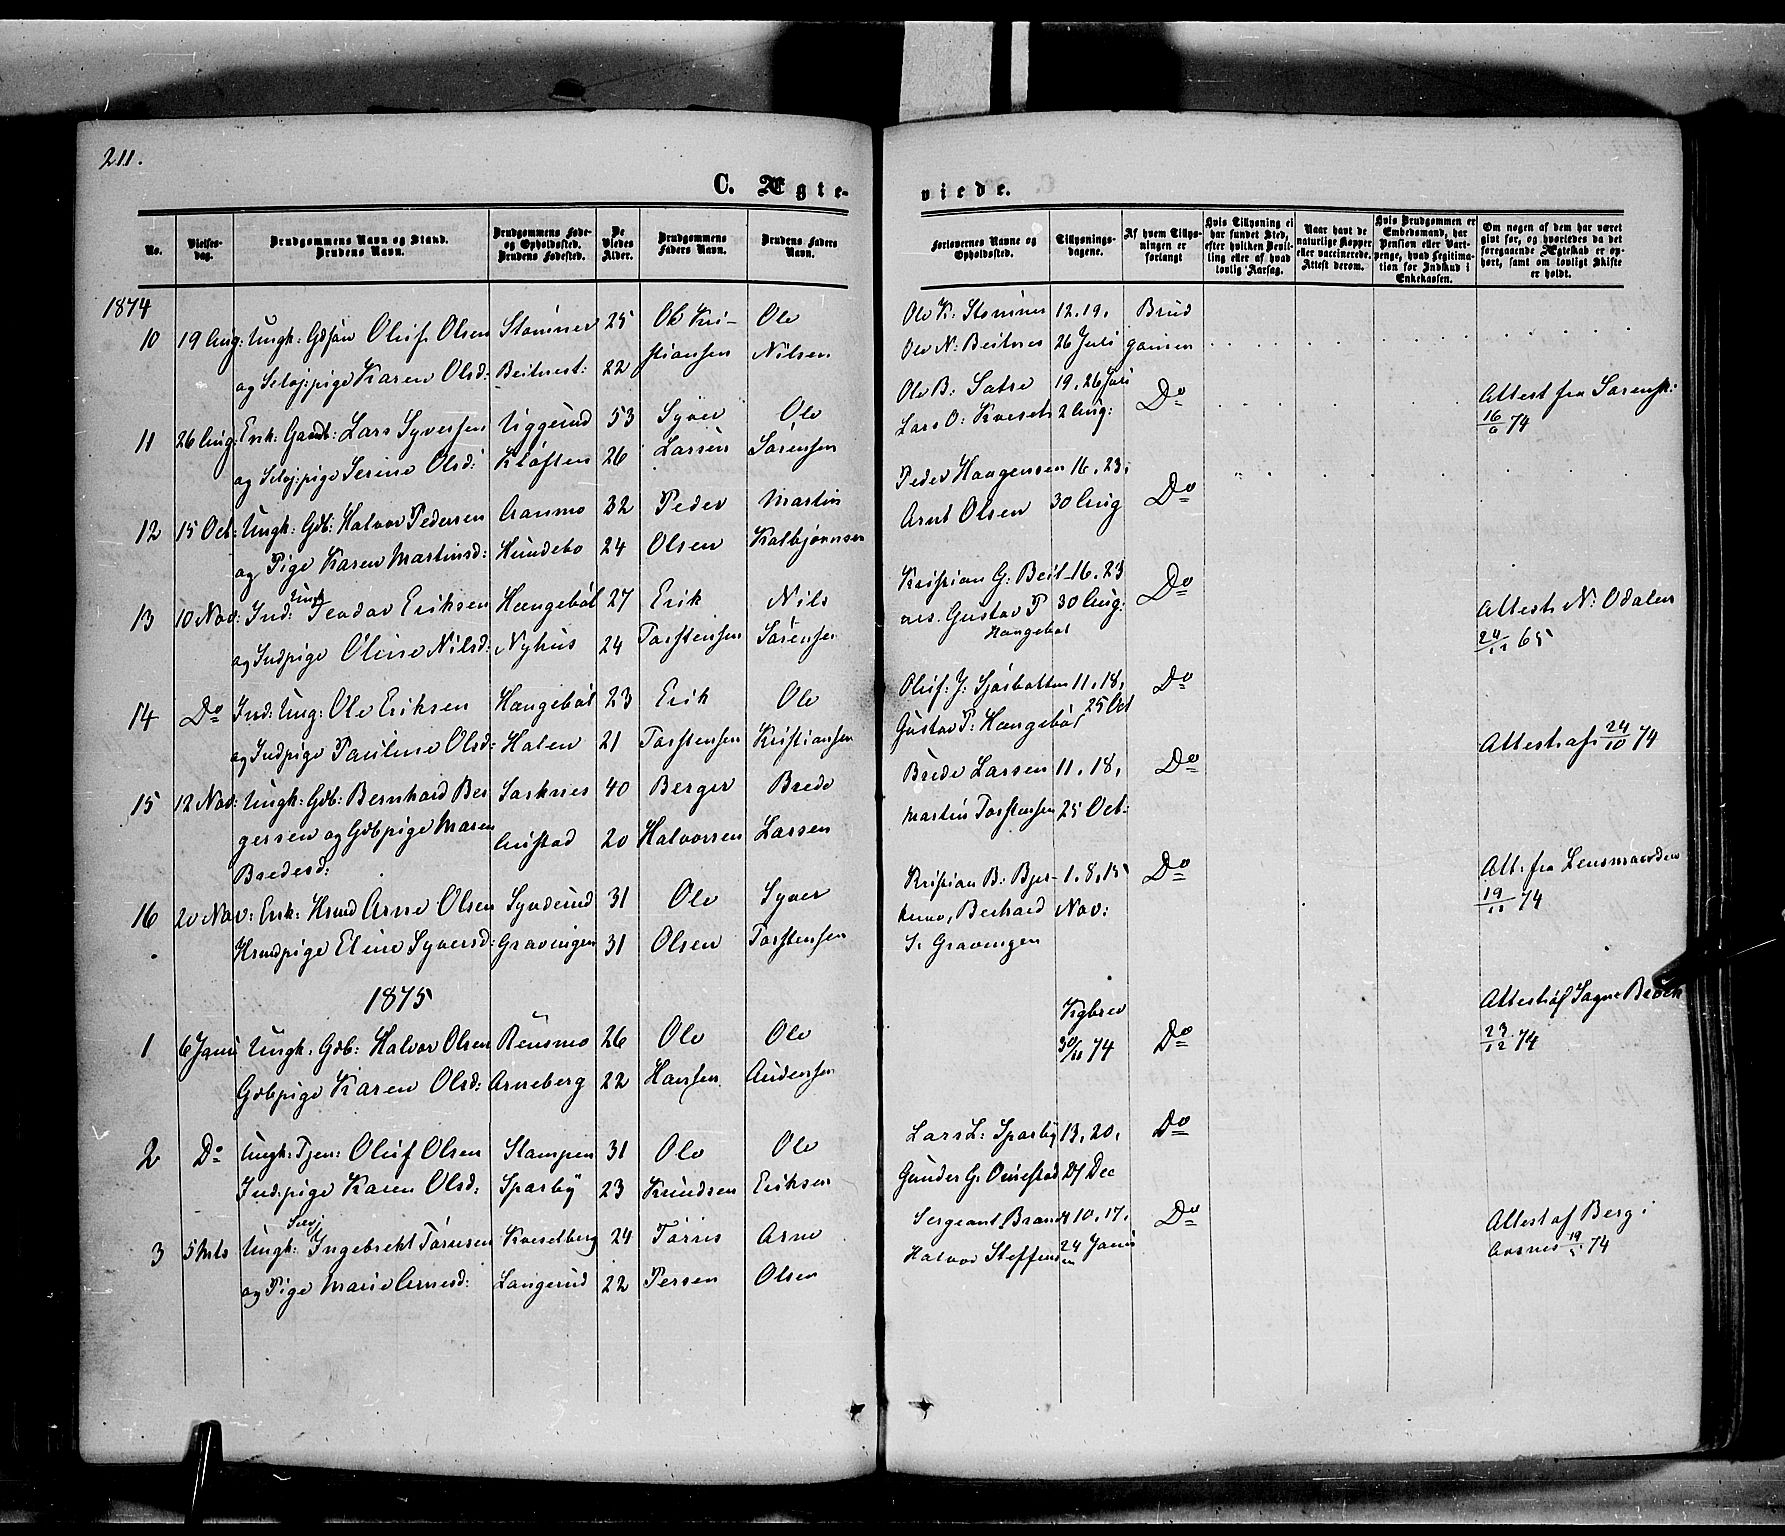 211.
C. Ægte-
viede.
No.
Vielses-dag.
Brudgommens Navn og Stand. Brudens Navn.
Brudgommens Føde- og Opholdsted. Brudens Fødested.
De Viedes Alder.
Brudgommens Faders Navn.
Brudens Faders Navn.
Forlovernes Navne og Opholdsted.
Tillysnings-dagene.
Af hvem Tillysningen er forlangt
Hvis Tillysning ei har fundet Sted, efter hvilken Bevilling eller af hvad lovlig Aarsag.
Naar havt de naturlige Kopper eller vaccinerede. Attest derom.
Hvis Brudgommen er Embedsmand, har Pension eller Vartpenge, hvad Legitimation for Indskud i Enkekassen.
Om nogen af dem har været givt før, og hvorledes da det foregaaende Ægteskab er ophørt, samt om lovligt Skifte er holdt.
1874
10 19 Aug: Ungk: Gdsøn Oluf Olsen Stomner 25 Ole Kri- Ole
og Selvj:pige Karen Olsd: Beitnest: 22 stiansen Nilsen
Ole K. Stomner 12. 19. Brud
Ole N: Beitnes 26 Juli gomen
11 26 Aug: Enk: Gaardb: Lars Syversen Uggerud 53 Syver Ole
og Selvj:pige Serine Olsd: Kløften 26 Larsen Sørensen
Ole B: Satre 19. 26 Juli Do
Lars O: Kveset 2 Aug:
Attest fra Sorensk:
16/6 74
12 15 Oct: Ungk: Gdb: Halvor Pedersen Aasmo 32 Peder Martin
og Pige Karen Martinsd: Hundebo 24 Olsen Kolbjørnsen
Peder Haagensen 16. 23. Do
Arnt Olsen 30 Aug
13 10 Nov: Ind: Ungk Teodor Eriksen Hængebøl 27 Erik Nils
og Indpige Oline Nilsd: Nyhus 24 Torstensen Sørensen
Kristian G: Beit- 16. 23 Do
nes. Gustav P 30 Aug:
Hængebøl
Attest N: Odalen
24/12 65
14 Do Ind: Ung: Ole Eriksen Hængebøl 23 Erik Ole
og Indpige Pauline Olsd: Holen 21 Torstensen Kristiansen
Oluf: J: Sjøsbotten 11. 18, Do
Gustav P: Hængebøl 25 Oct
Attest af: 24/10 74
15 12 Nov: Ungk: Gdb: Bernhard Ber Sorknes 40 Berger Brede
gersen og Gdbpige Maren Austad 20 Halvorsen Larsen
Bredesd:
Brede Larsen 11. 18, Do
Martin Torstensen 25 Oct:
16 20 Nov: Enk: Hsmd Arne Olsen Synderud 31 Ole Syver
Hsmdpige Eline Syversd: Gravingen 31 Olsen Torstensen
Kristian B: Bjer- 1. 8, 15 Do
kemo, Berhard Nov:
S: Gravengen
Att: fra Lensmanden
19/11 74
1875
1 6 Janu Ungk: Gdb: Halvor Olsen Rensmo 26 Ole Ole
Gdbpige Karen Olsd: Arneberg 22 Hansen Audensen
Kgbrev Do
30/11 74
Attest af Sogne Brock
23/12 74
2 Do Ungk: Tjen: Oluf Olsen Stampen 31 Ole Ole
Indpige Karen Olsd: Sparby 23 Knudsen Eriksen
Lars L: Sparby 13, 20, Do
Gunder G: Ounestad 27 Dec
3 5 Mts Ungk: Selvj Ingebrekt Tørresen Kveselberg 24 Tørris Arne
og Pige Marie Arnesd: Langerud 22 Persen Olsen
Sergeant Brandt 10. 17. Do
Halvor Steffensen 24 Janu
Attest af Berg i
Aasnes 19/1 74